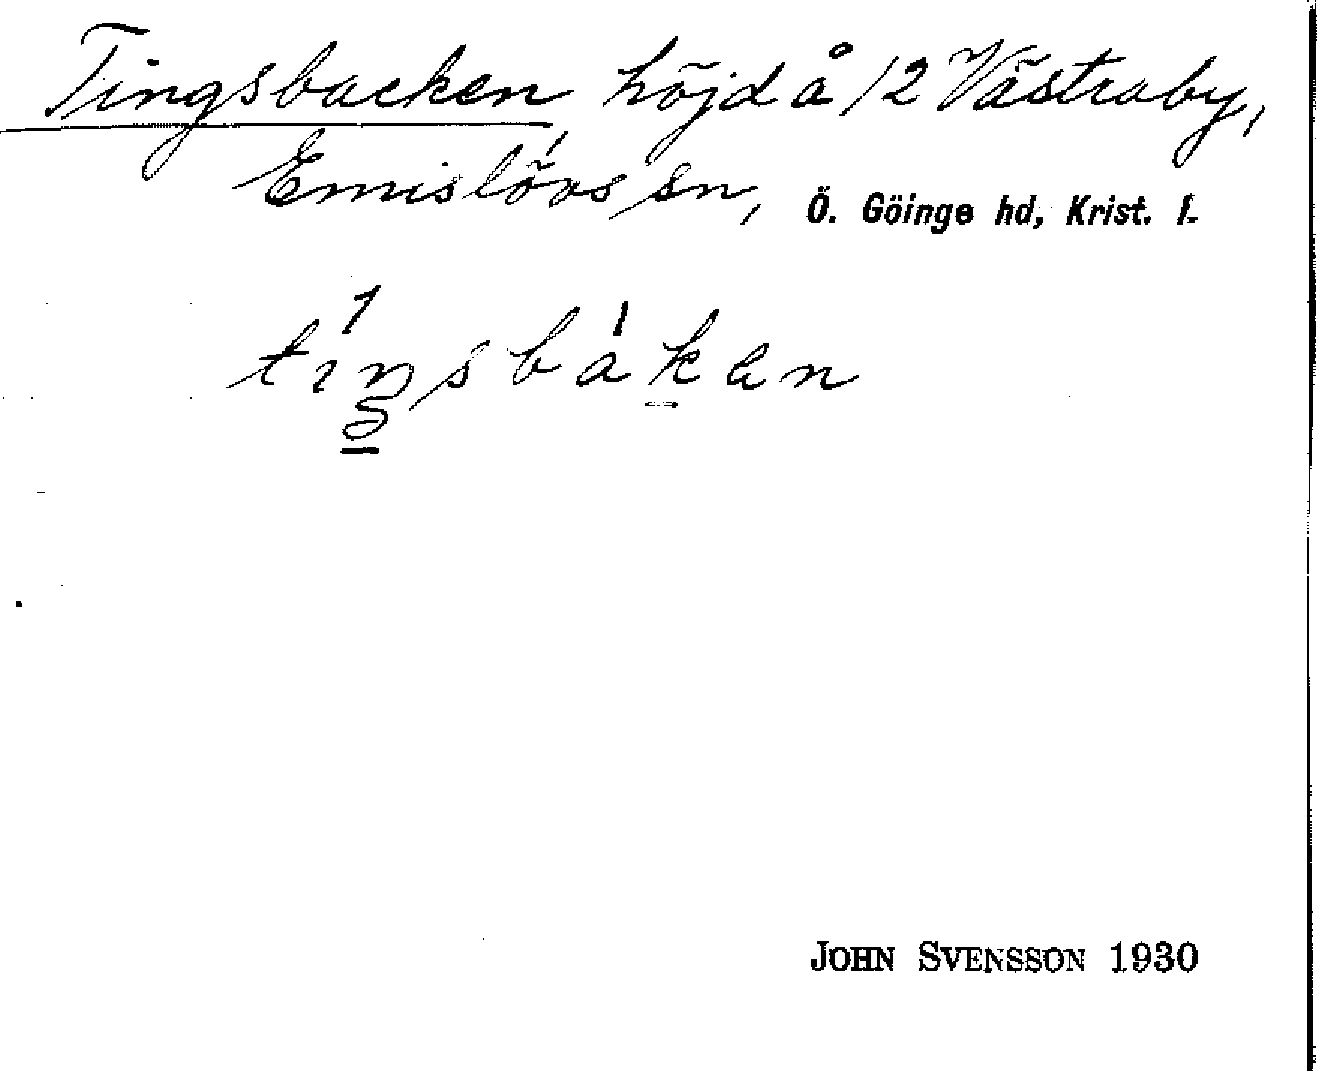 Tingsbacken, höjd å 12 Västraby,
Emislövs sn, Ö. Göinge hd, Krist. l.
tiŋsbakan
JOHN SVENSSON 1930